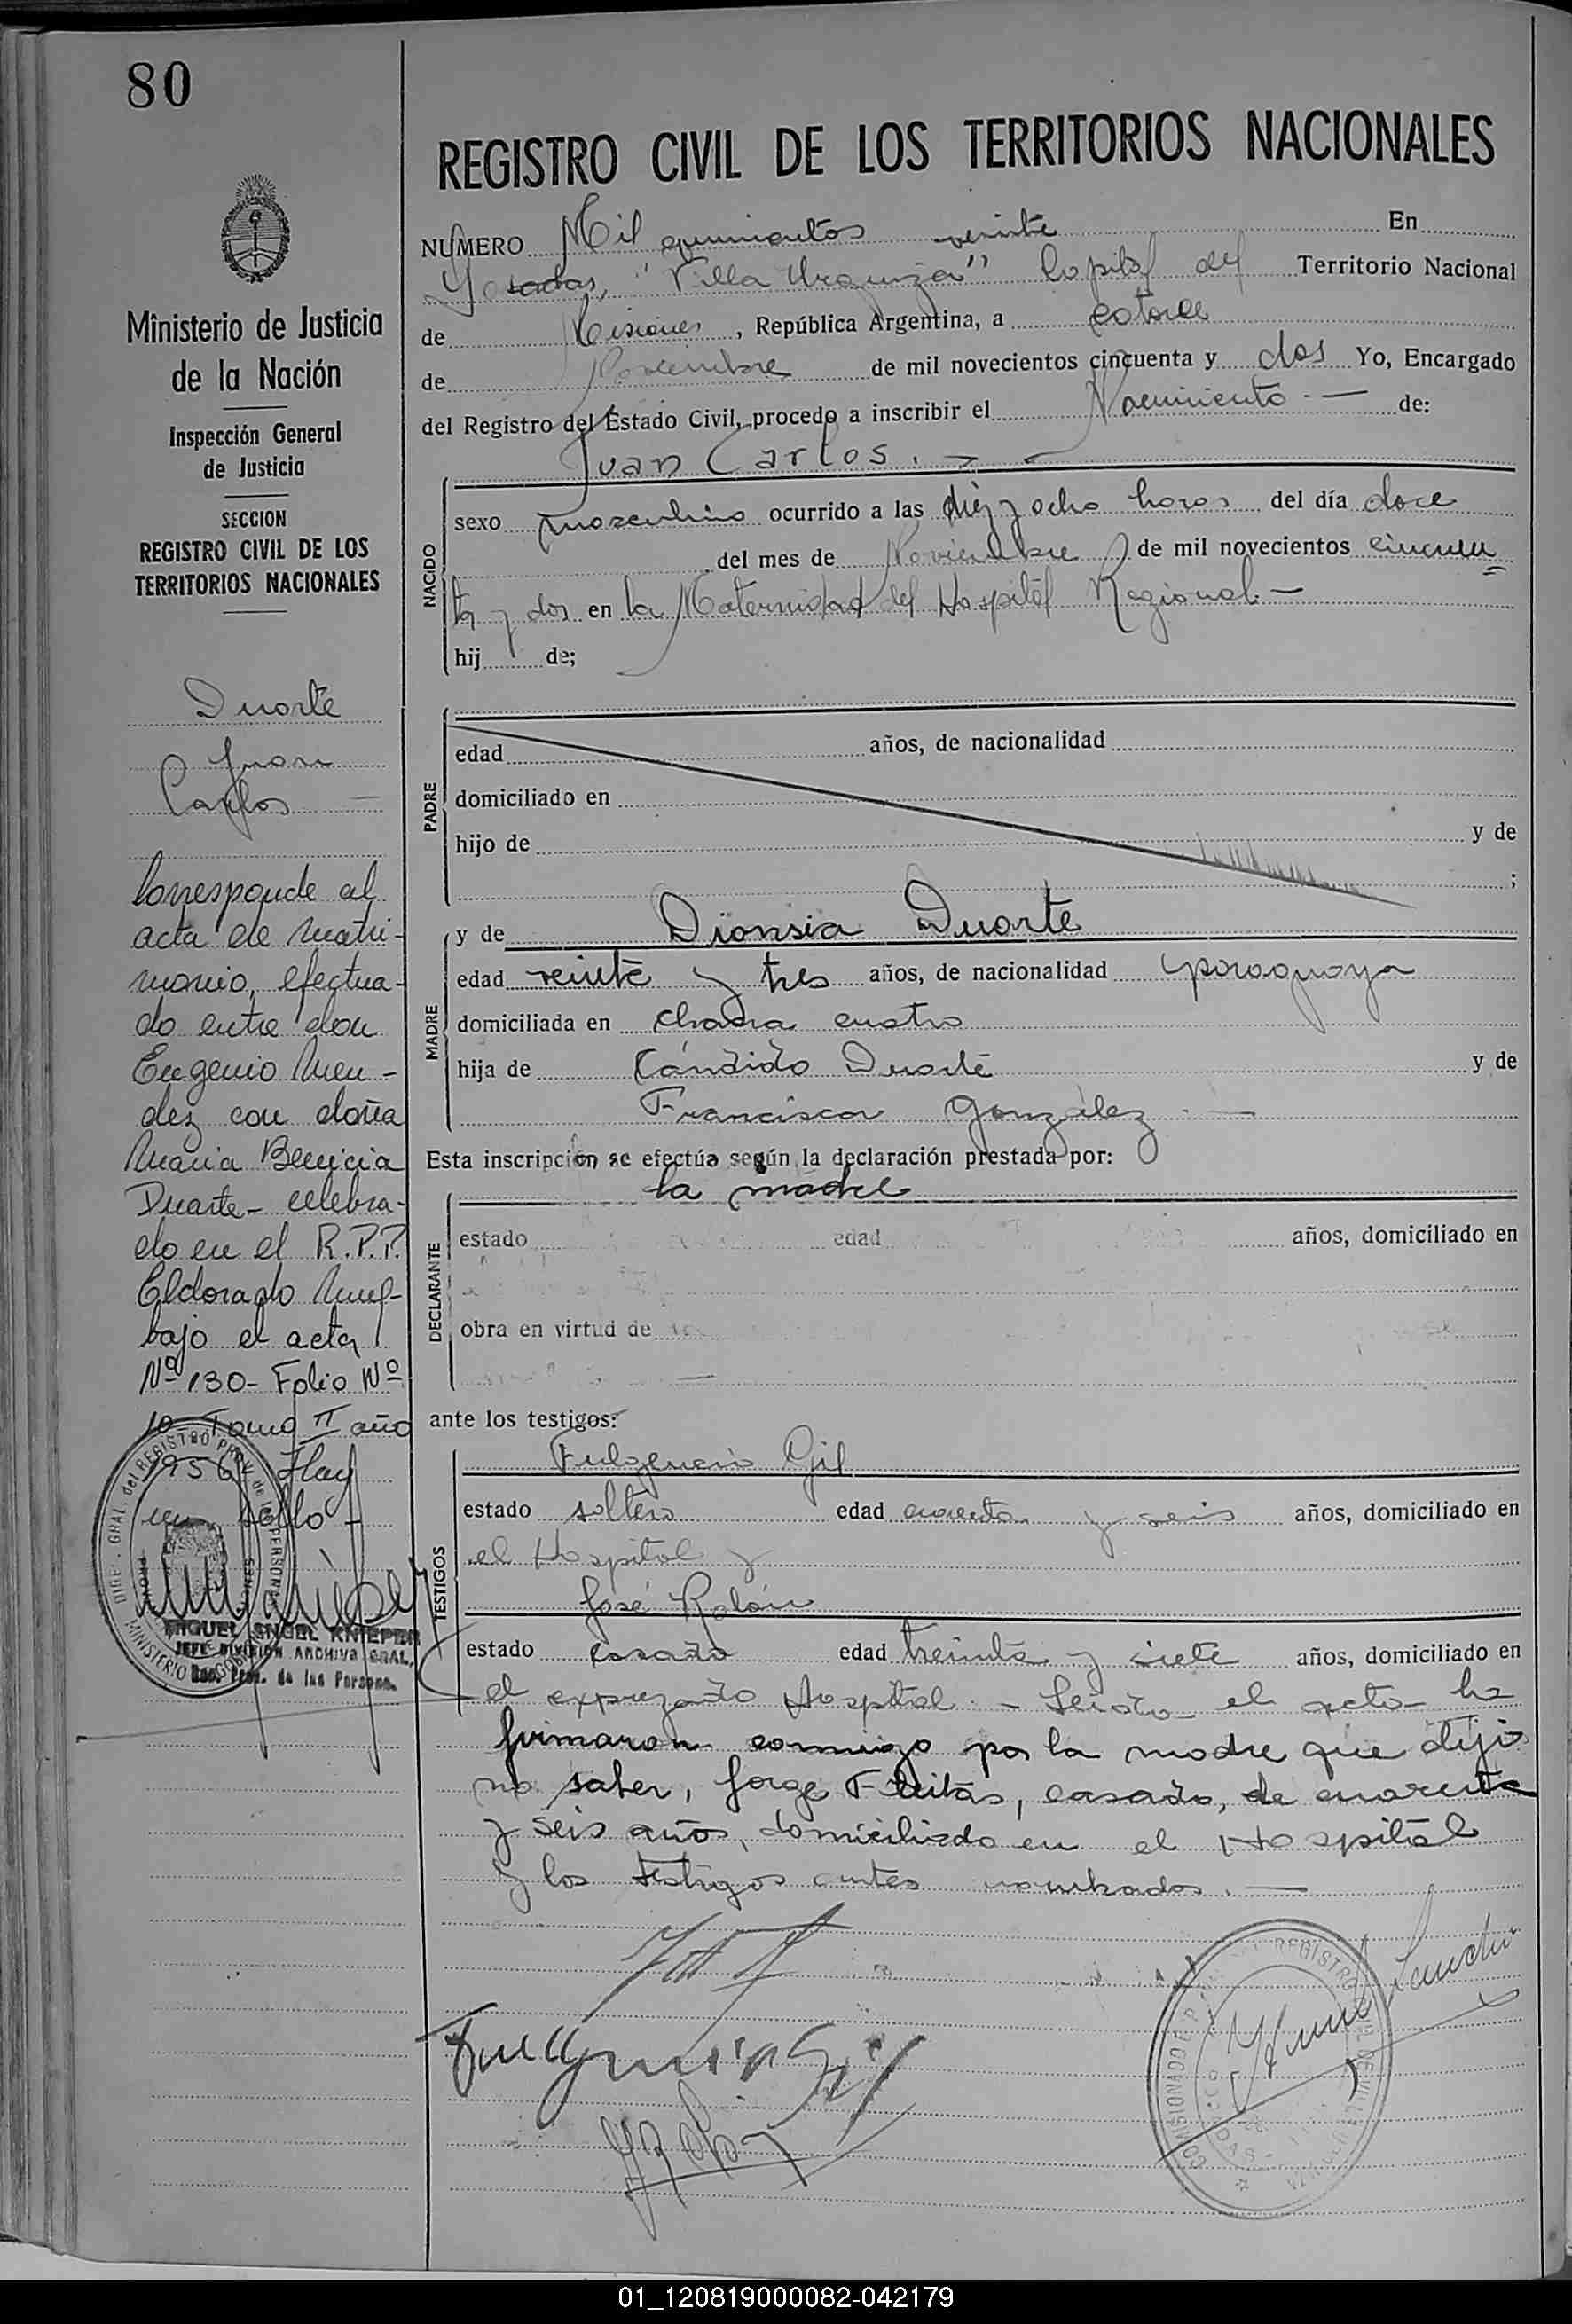 80
REGISTRO CIVIL DE LOS TERRITORIOS NACIONALES
NUMERO Mil quinientos veinte En
Posadas, "Villa Urquiza" Capital del Territorio Nacional
de Misiones, República Argentina, a catorce
de Noviembre de mil novecientos cincuenta y dos Yo, Encargado
del Registro del Estado Civil, procedo a inscribir el Nacimiento - — de:
Juan Carlos. -
NACIDO
sexo masculino ocurrido a las diez y ocho horas del día doce
del mes de Noviembre de mil novecientos cincuen
ta y dos en la Maternidad del Hospital Regional. —
hij de;
PADRE
edad años, de nacionalidad
domiciliado en
hijo de y de
;
MADRE
y de Dionsia Duarte
edad veinte y tres años, de nacionalidad paraguaya
domiciliada en chacra cuatro
hija de Cándido Duarte y de
Francisca González. —
Esta inscripción se efectúa según la declaración prestada por:
la madre
DECLARANTE
estado edad años, domiciliado en
obra en virtud de
ante los testigos:
TESTIGOS
Fulgencio Gil
estado soltero edad cuarenta y seis años, domiciliado en
el Hospital y
José Rolón
estado casado edad treinta y siete años, domiciliado en
el expresado Hospital. — Leída el acta la
firmaron conmigo por la madre que dijo
no saber, Jorge Freitas, casado, de cuarenta
y seis años, domiciliado en el Hospital
y los testigos antes nombrados. —
Fulgencio Gil
Ministerio de Justicia
de la Nación
Inspección General
de Justicia
SECCION
REGISTRO CIVIL DE LOS
TERRITORIOS NACIONALES
Duarte
Juan
Carlos —
Corresponde al
acta de matri-
monio, efectua-
do entre don
Eugenio Men-
dez con doña
Maria Benicia
Duarte - celebra-
do en el R.P.P.
Eldorado
bajo el acta
Nº 130 - Folio Nº
10 Tomo II año
1956 Hay
un sello -
DIRE. GRAL. del REGISTRO PROV. de las PERSONAS
MINISTERIO
MIGUEL ANGEL KNIEPER
JEFE DIVISION ARCHIVO GRAL.
Reg. Prov. de las Personas
01_120819000082-042179